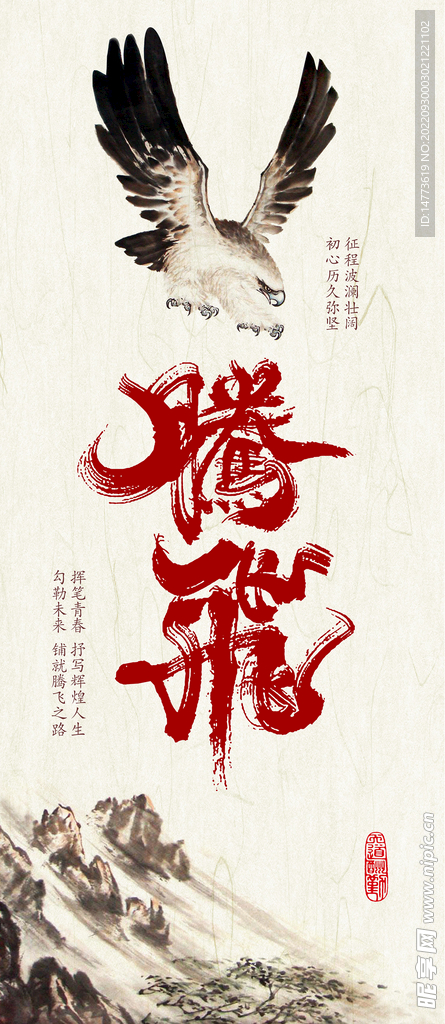 NO:20220930003021221102 ID:14773619
征程波澜壮阔
初心历久弥坚
騰飛
挥笔青春 抒写辉煌人生
勾勒未来 铺就腾飞之路
天道酬勤
昵享网 www.nipic.cn